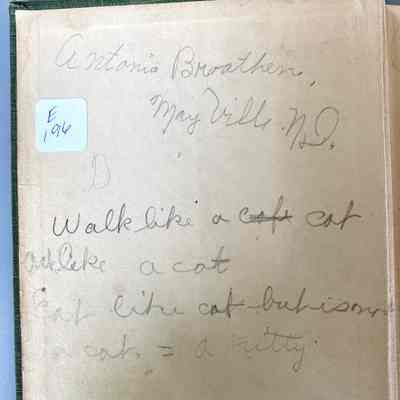 Antonio Broathen,
May Ville N.D.
E
196
D
Walk like a cat cat
like a cat
Eat like cat but
a cat = a kitty.